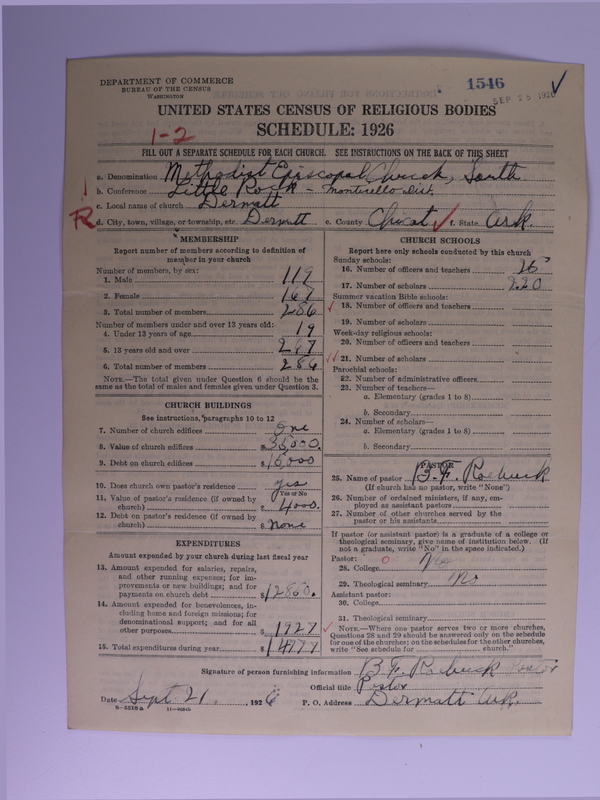 DEPARTMENT OF COMMERCE
BUREAU OF THE CENSUS
WASHINGTON
1546
SEP 25 1926
UNITED STATES CENSUS OF RELIGIOUS BODIES
SCHEDULE: 1926
1-2
FILL OUT A SEPARATE SCHEDULE FOR EACH CHURCH. SEE INSTRUCTIONS ON THE BACK OF THIS SHEET
a. Denomination Methodist Episcopal Church, South
b. Conference Little Rock - Monticello Dist.
c. Local name of church Dermott
d. City, town, village, or township, etc. Dermott e. County Chicot f. State Ark.
MEMBERSHIP
Report number of members according to definition of
member in your church
Number of members, by sex:
1. Male 119
2. Female 167
3. Total number of members 286
Number of members under and over 13 years old:
4. Under 13 years of age 19
5. 13 years old and over 267
6. Total number of members 286
NOTE.—The total given under Question 6 should be
the same as the total of males and females given under Question 3.
CHURCH BUILDINGS
See instructions, paragraphs 10 to 12
7. Number of church edifices One
8. Value of church edifices $35000.
9. Debt on church edifices $15,000
10. Does church own pastor's residence yes
Yes or No
11. Value of pastor's residence (if owned by
church) $4000.
12. Debt on pastor's residence (if owned by
church) $None
EXPENDITURES
Amount expended by your church during last fiscal year
13. Amount expended for salaries, repairs,
and other running expenses; for im-
provements or new buildings; and for
payments on church debt $12850.
14. Amount expended for benevolences, in-
cluding home and foreign missions; for
denominational support; and for all
other purposes $1927
15. Total expenditures during year $14777
CHURCH SCHOOLS
Report here only schools conducted by this church
Sunday schools:
16. Number of officers and teachers 25
17. Number of scholars 220
Summer vacation Bible schools:
18. Number of officers and teachers
19. Number of scholars
Week-day religious schools:
20. Number of officers and teachers
21. Number of scholars
Parochial schools:
22. Number of administrative officers
23. Number of teachers—
a. Elementary (grades 1 to 8)
b. Secondary
24. Number of scholars—
a. Elementary (grades 1 to 8)
b. Secondary
PASTOR
25. Name of pastor B. F. Roebuck
(If church has no pastor, write "None")
26. Number of ordained ministers, if any, em-
ployed as assistant pastors
27. Number of other churches served by the
pastor or his assistants
If pastor (or assistant pastor) is a graduate of a college or
theological seminary, give name of institution below. (If
not a graduate, write "No" in the space indicated.)
Pastor:
28. College No
29. Theological seminary No
Assistant pastor:
30. College
31. Theological seminary
NOTE.—Where one pastor serves two or more churches,
Questions 28 and 29 should be answered only on the schedule
for one of the churches; on the schedules for the other churches,
write "See schedule for church."
Signature of person furnishing information B. F. Roebuck Pastor
Official title Pastor
Date Sept 21, 1926 P. O. Address Dermott Ark.